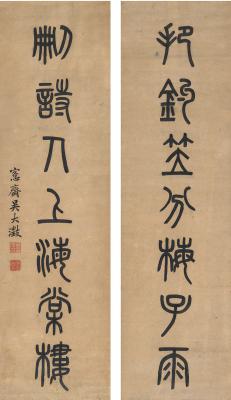 把釣笠分梅子雨
刪詩人上海棠樓
愙齋吳大澂